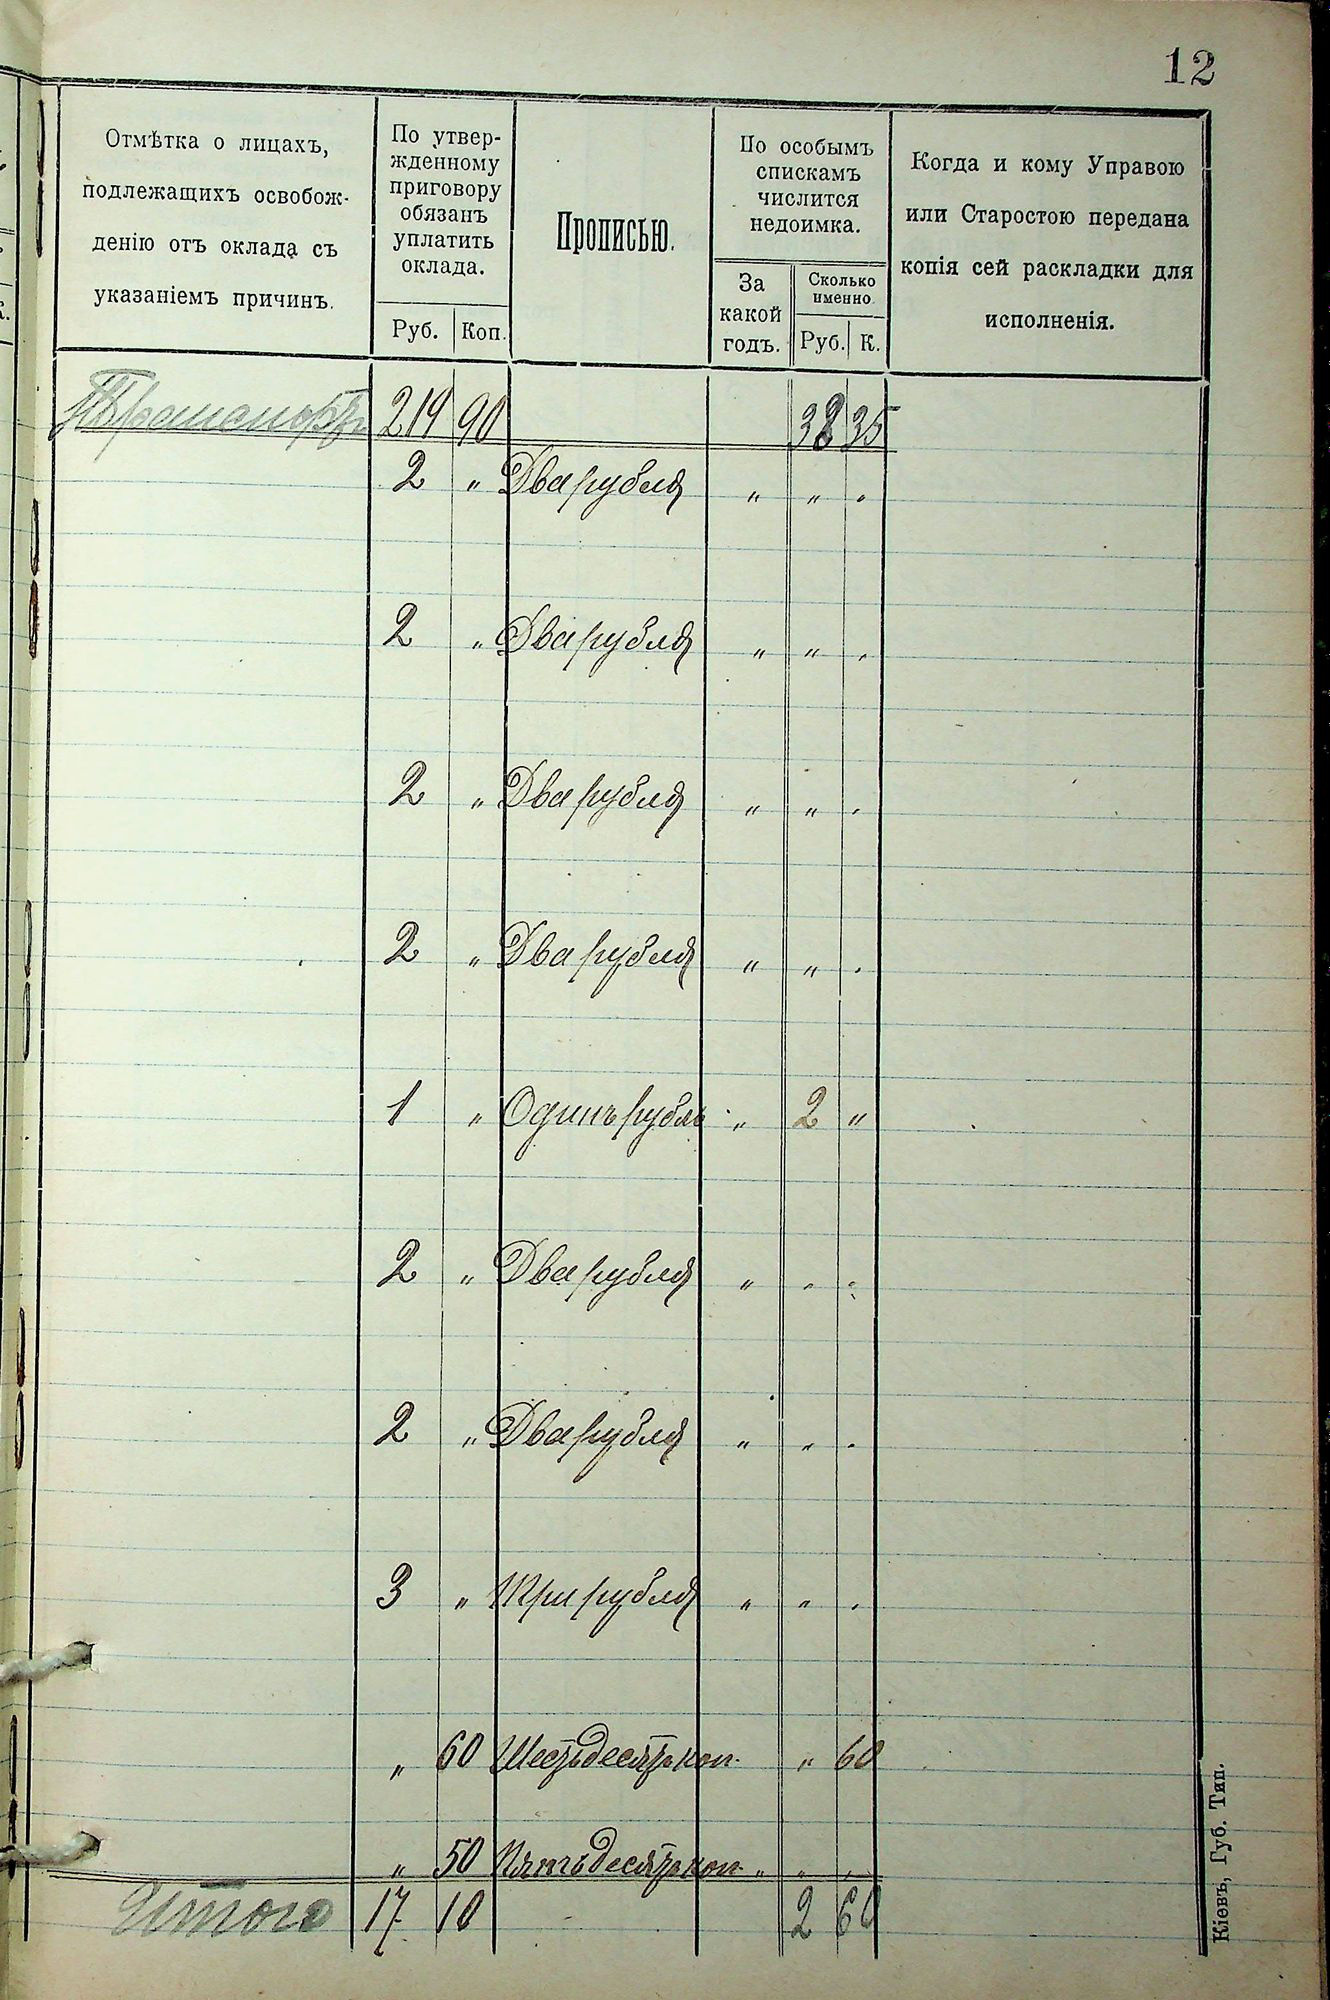 12
Отмѣтка о лицахъ,
подлежащихъ освобож-
денію отъ оклада съ
указаніемъ причинъ.
По утвер-
жденному
приговору
обязанъ
уплатить
оклада.
Руб. Коп.
Прописью.
По особымъ
спискамъ
числится
недоимка.
За
какой
годъ.
Сколько
именно.
Руб. К.
Когда и кому Управою
или Старостою передана
копія сей раскладки для
исполненія.
Транспортъ 219 90 38 35
2 " Два рубля " " "
2 " Два рубля " " "
2 " Два рубля " " "
2 " Два рубля " " "
1 " Одинъ рубль " 2 "
2 " Два рубля " " "
2 " Два рубля " " "
3 " Три рубля " " "
" 60 Шестьдесятъ коп. " 60
" 50 Пятьдесятъ коп. " " "
Итого 17 10 2 60
Кіевъ, Губ. Тип.